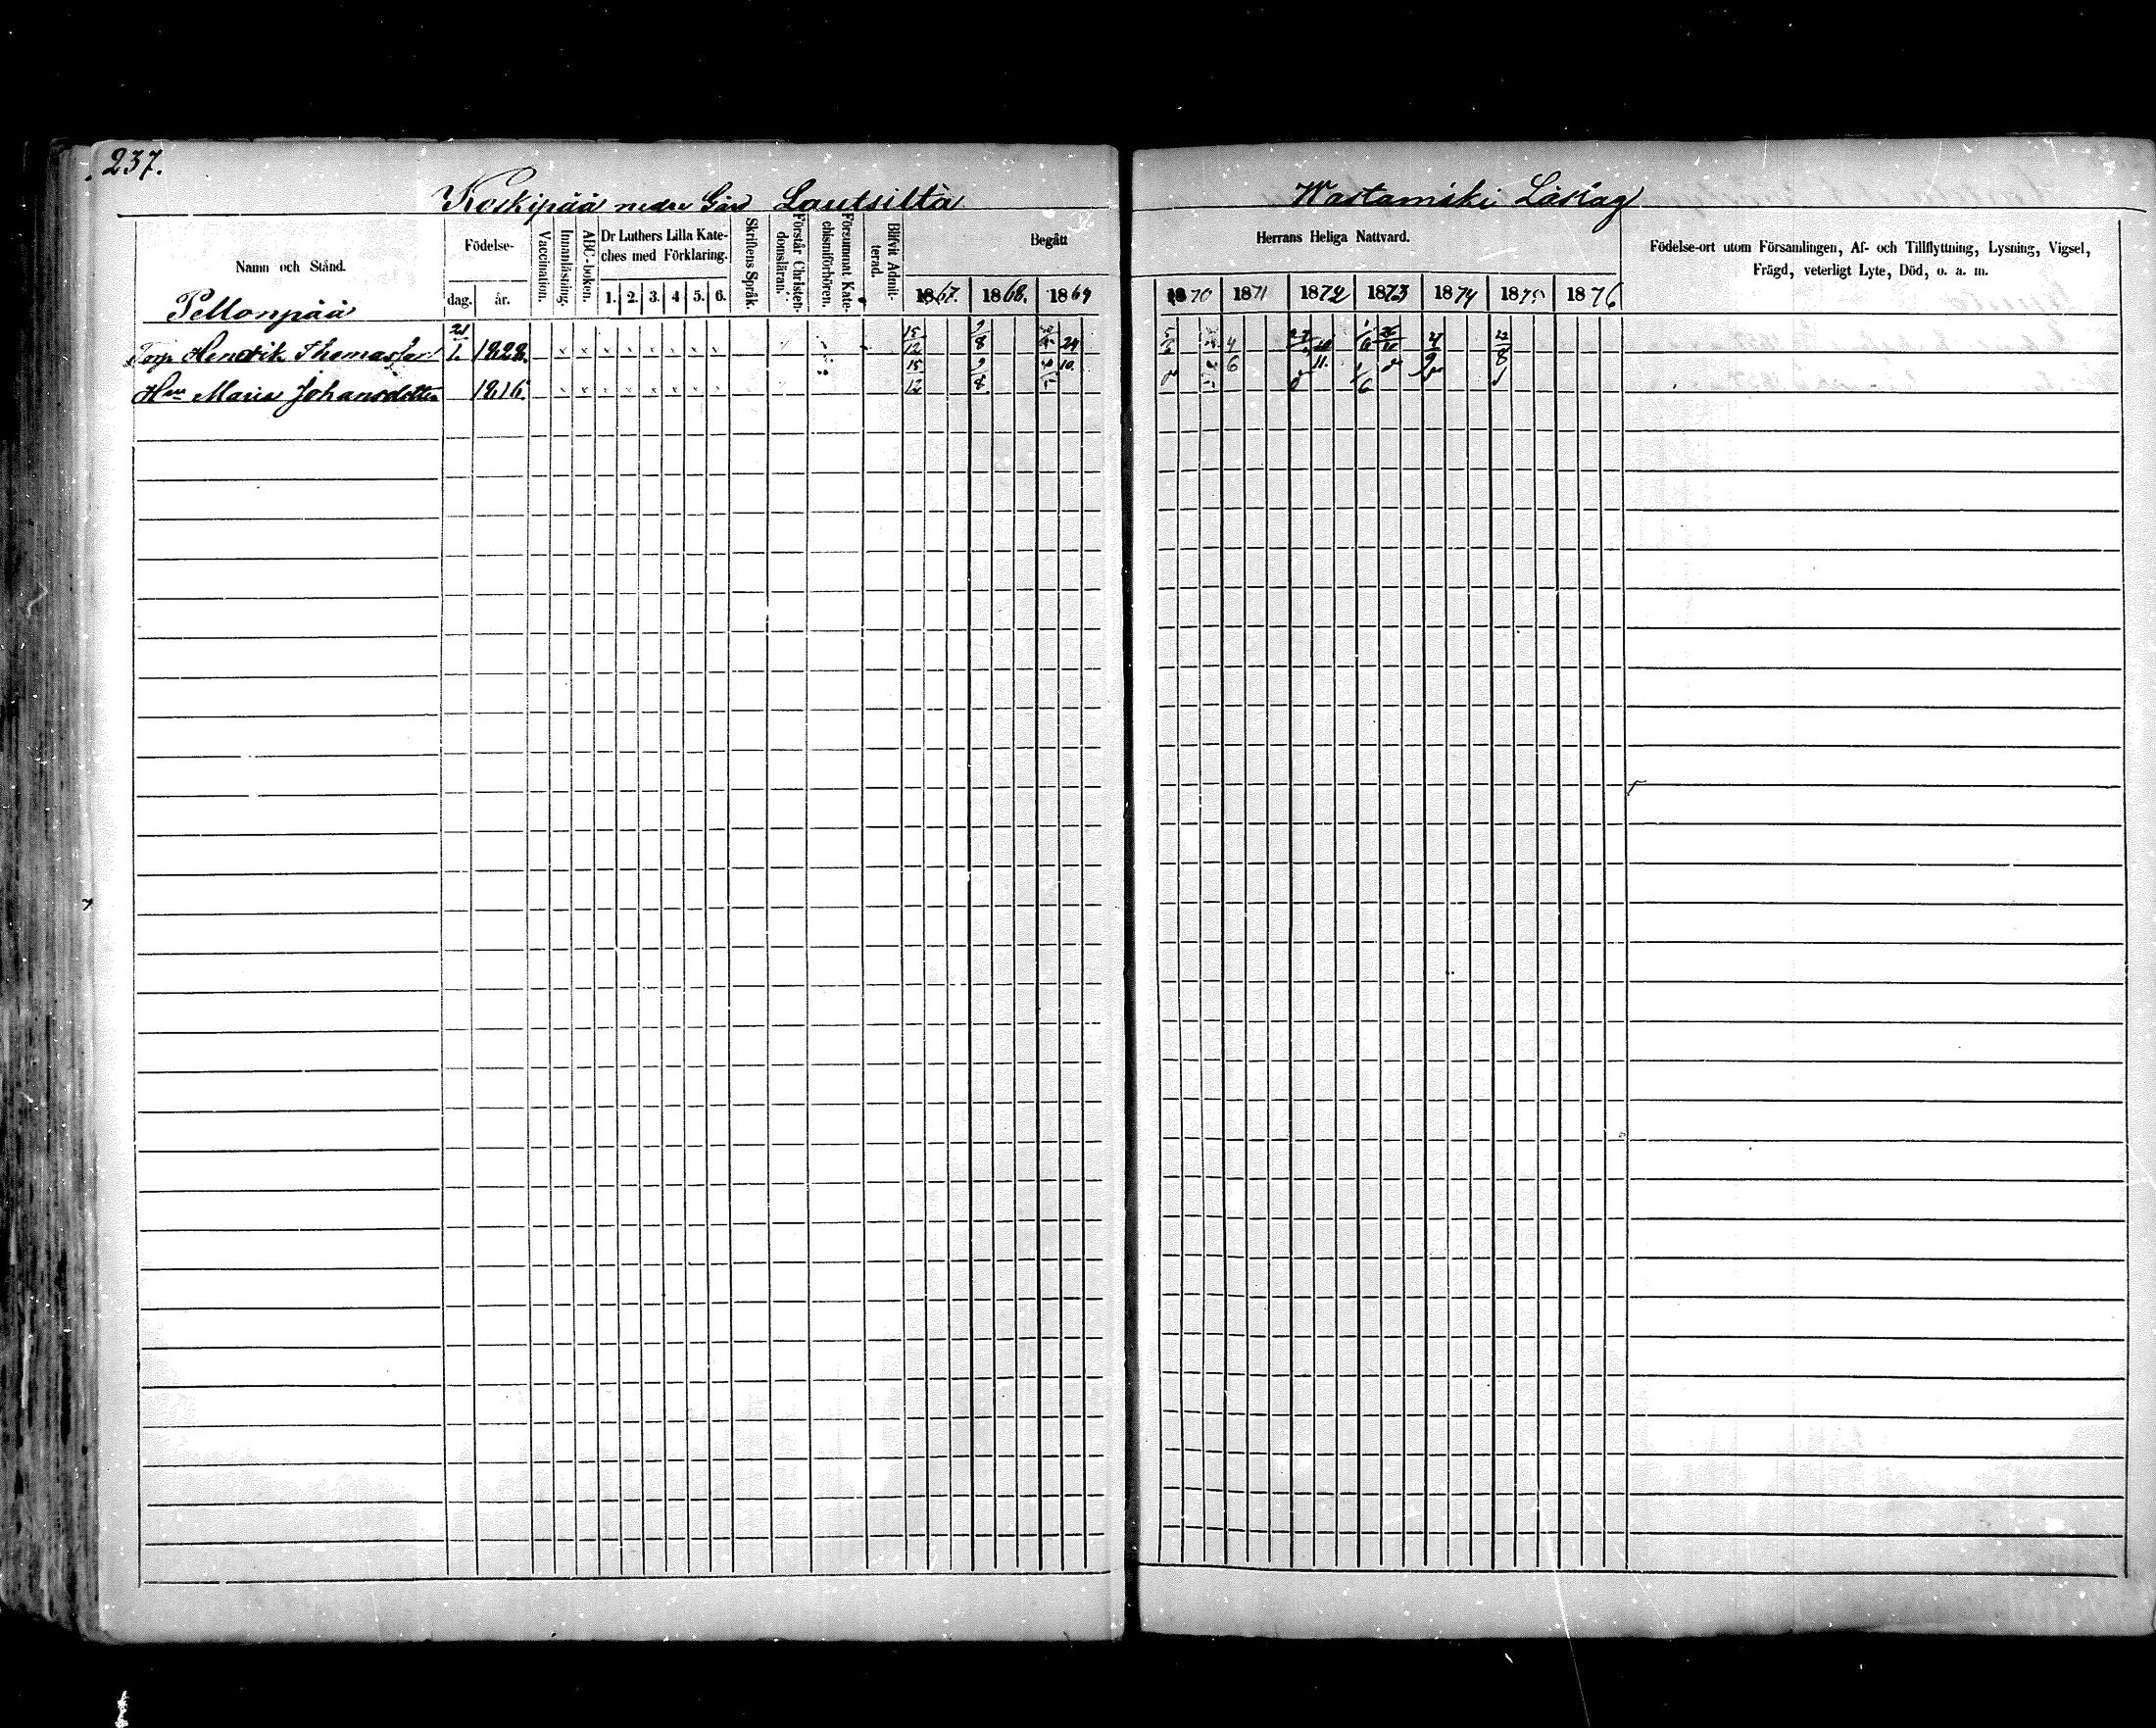 237.
Koskipää nedre Gård Lautsilta Wastamäki Läslag
Namn och Stånd.
Födelse-
dag. år.
Vaccination.
Innanläsning.
ABC-boken.
Dr Luthers Lilla Kate-
ches med Förklaring.
1. 2. 3. 4 5. 6.
Skriftens Språk.
Förstår Christen-
domsläran.
Försummat Kate-
chismiförhören.
Blifvit Admit-
terad.
Begått Herrans Heliga Nattvard.
1867. 1868. 1869 1870 1871 1872 1873 1874 1875 1876
Födelse-ort utom Församlingen, Af- och Tillflyttning, Lysning, Vigsel,
Frägd, veterligt Lyte, Död, o. a. m.
Pellonpää
Torp Hendrik Thomasson 21/1 1828 x x x x x x x x 15/12 9/8 24/10.
Hru Maria Johansdotter 1816 x x x x x x x x 15/12 9/8